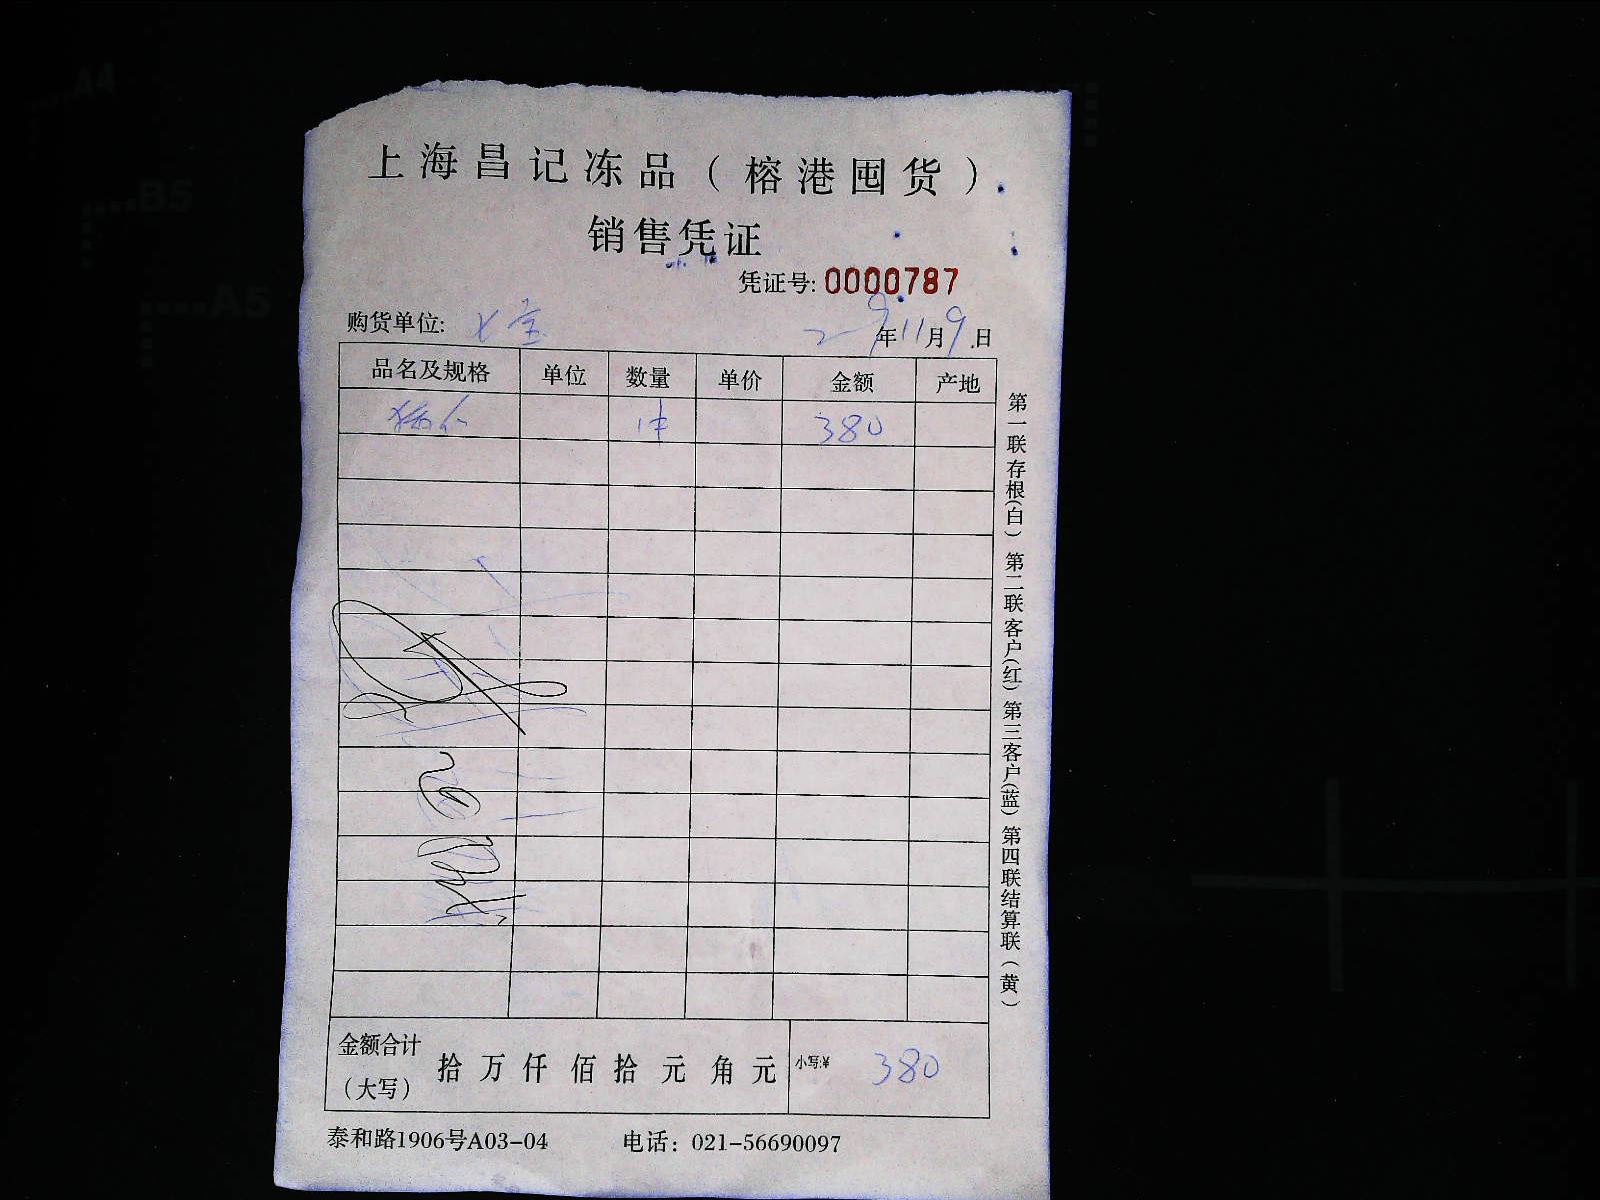 上海昌记冻品（榕港囤货）
销售凭证
凭证号: 0000787
购货单位:
年11月9日
品名及规格 单位 数量 单价 金额 产地
1件 380
金额合计（大写） 拾 万 仟 佰 拾 元 角 元 小写:¥ 380
泰和路1906号A03-04 电话：021-56690097
第一联存根(白) 第二联客户(红) 第三客户(蓝) 第四联结算联(黄)
A4
B5
A5